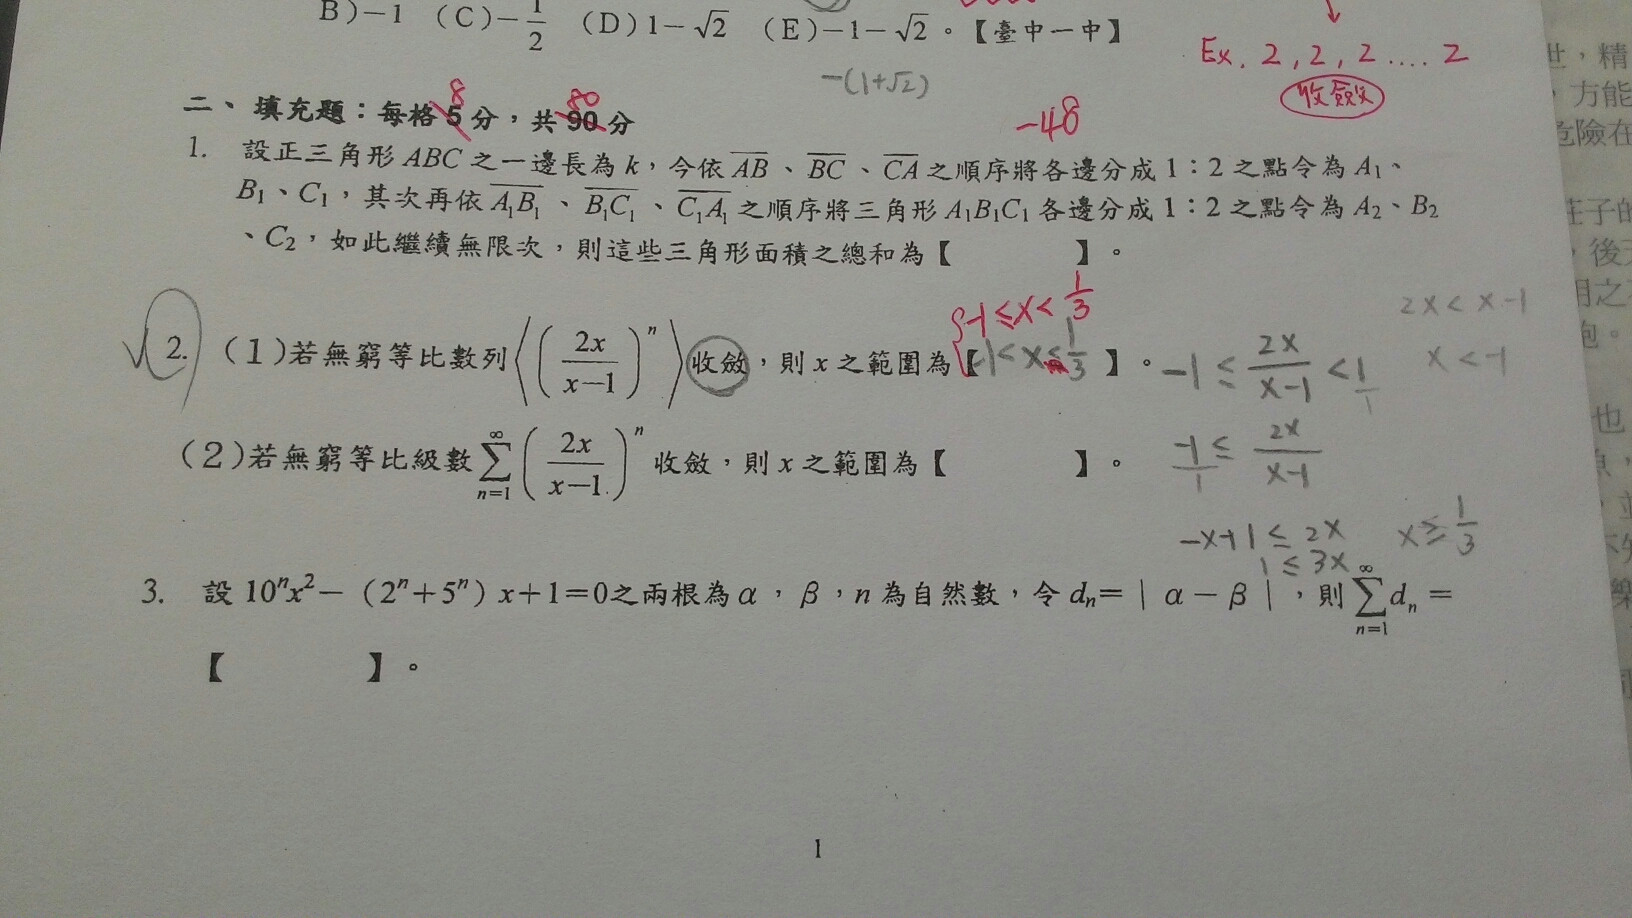 B)−1 (C)−1/2 (D)1−√2 (E)−1−√2。【臺中一中】
−(1+√2)
Ex. 2, 2, 2 .... 2
收斂
二、填充題：每格 5 分，共 90 分
8 80
−48
1. 設正三角形 ABC 之一邊長為 k，今依 AB、BC、CA 之順序將各邊分成 1：2 之點令為 A₁、
B₁、C₁，其次再依 A₁B₁、B₁C₁、C₁A₁ 之順序將三角形 A₁B₁C₁ 各邊分成 1：2 之點令為 A₂、B₂
、C₂，如此繼續無限次，則這些三角形面積之總和為【 】。
−1≤x<1/3
2x<x−1
2. (1)若無窮等比數列⟨(2x/(x−1))ⁿ⟩收斂，則 x 之範圍為【−1<x≤1/3 】。 −1≤2x/(x−1)<1/1
x<−1
(2)若無窮等比級數 ∑n=1∞ (2x/(x−1))ⁿ 收斂，則 x 之範圍為【 】。
−1/1≤2x/(x−1)
−x+1≤2x x≥1/3
1≤3x
3. 設 10ⁿx²−（2ⁿ+5ⁿ）x+1=0之兩根為 α，β，n 為自然數，令 dₙ=｜α−β｜，則 ∑n=1∞ dₙ=
【 】。
1
世，精
，方能
危險在
莊子的
，後天
用之
也